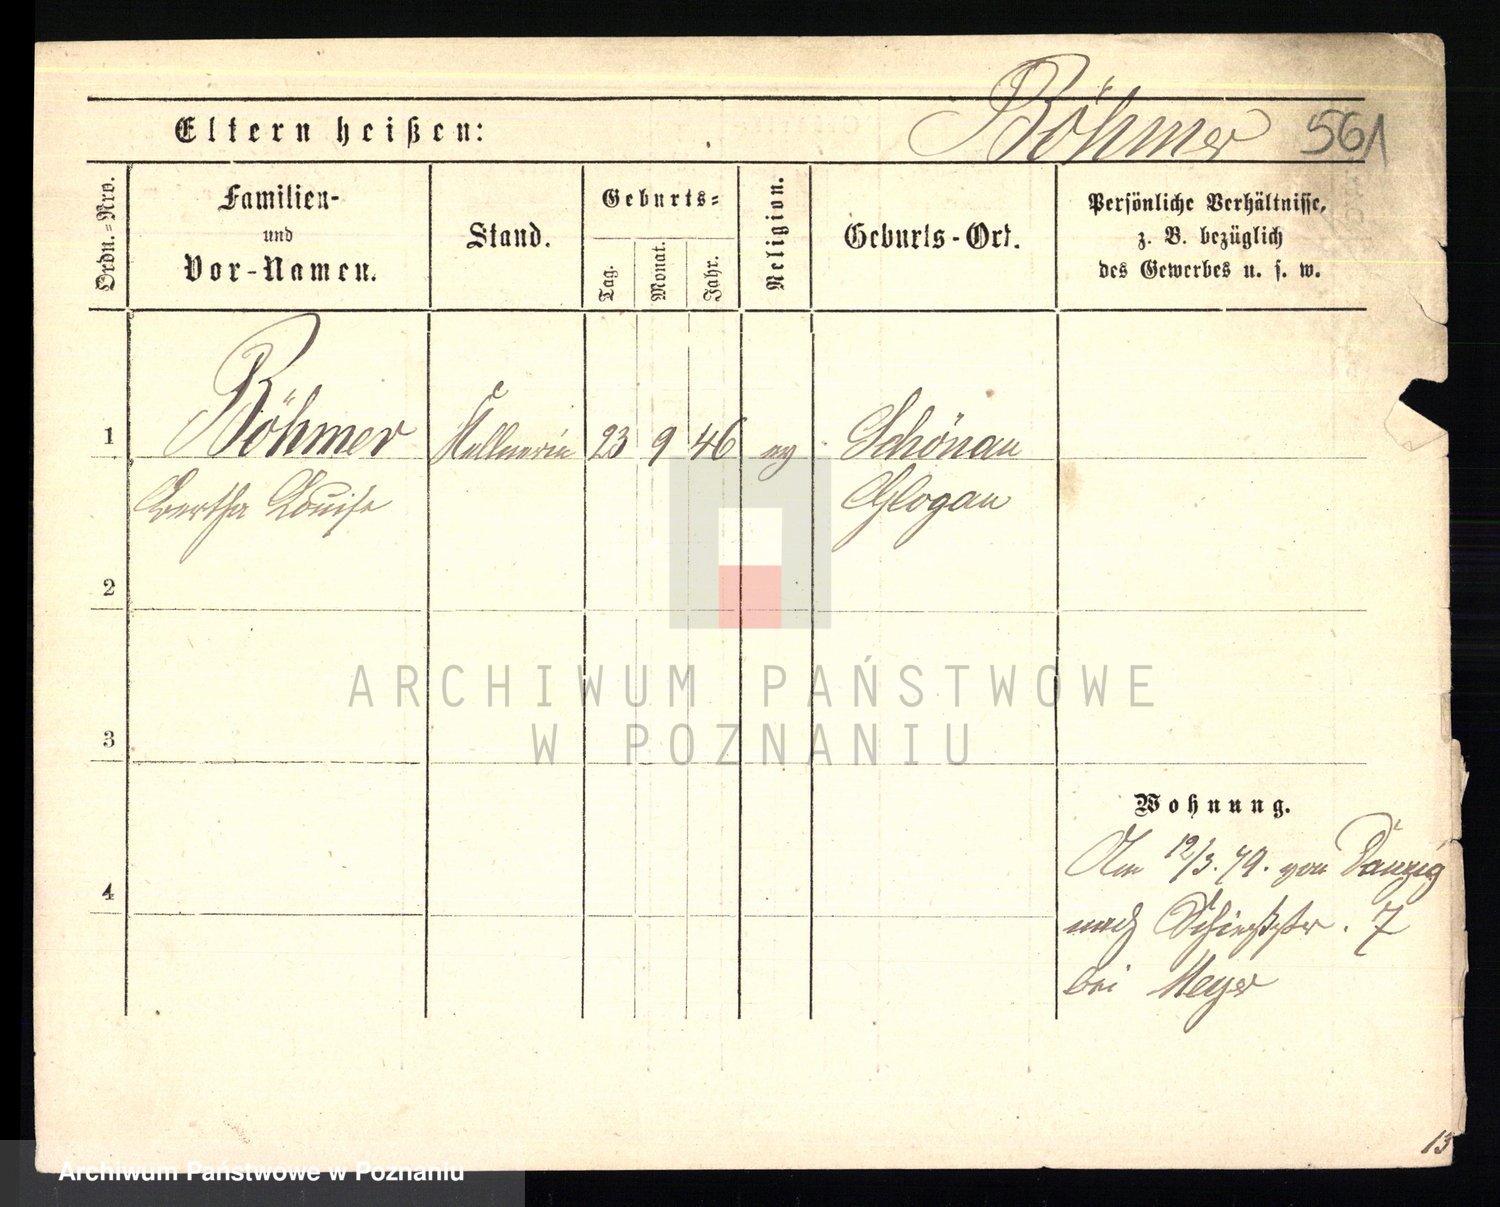 Böhmer 561
Eltern heißen:
Ordn.-Nro.
Familien-
und
Vor-Namen.
Stand.
Geburts-
Tag.
Monat.
Jahr.
Religion.
Geburts-Ort.
Persönliche Verhältnisse,
z. B. bezüglich
des Gewerbes u. s. w.
1 Böhmer Kellnerin 23 9 46 ev Schönau
Bertha Louise Glogau
2
3
4
Wohnung.
Am 12/3. 79. von Danzig
nach Schießstr. 7
bei Meyer
13
ARCHIWUM PAŃSTWOWE
W POZNANIU
Archiwum Państwowe w Poznaniu